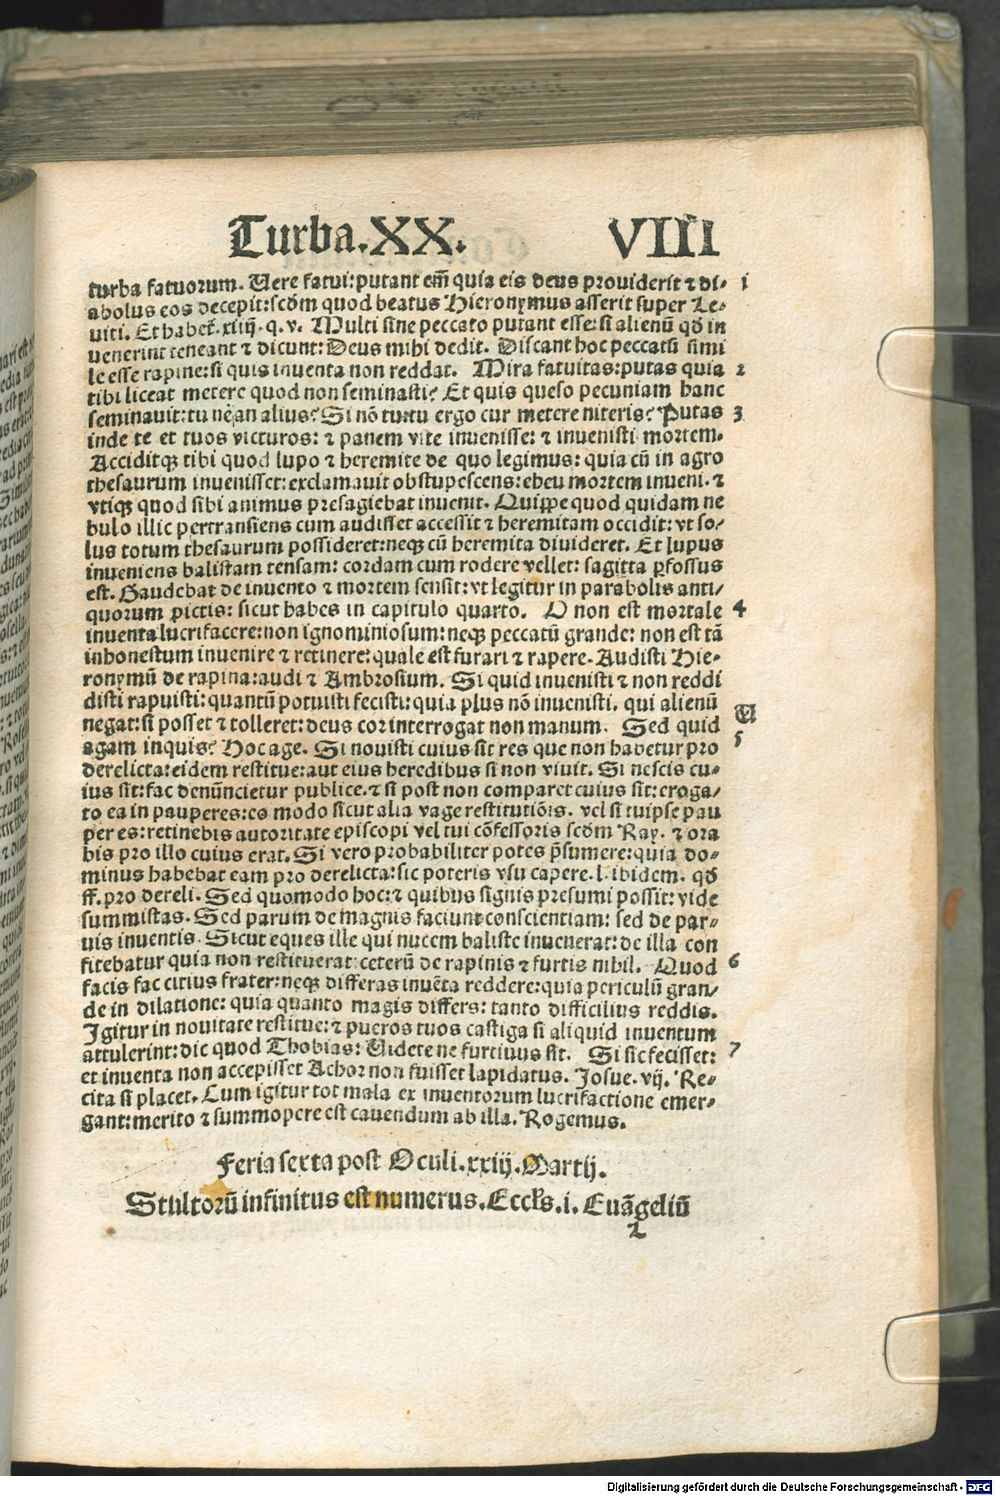 Turba.XX. VIIII
turba fatuorum. Vere fatui:putant em̄ quia eis deus prouiderit ⁊ di⸗ 1
abolus eos decepit:scd̄m quod beatus Hieronymus asserit super Le⸗
viti. Et habet̄. xiiij. q. v. Multi sine peccato putant esse: si alienū qd̄ in
venerint teneant ⁊ dicunt: Deus mihi dedit. Discant hoc peccatū simi
le esse rapine: si quis inuenta non reddat. Mira fatuitas:putas quia 2
tibi liceat metere quod non seminasti? Et quis queso pecuniam hanc
seminauit:tu ne an alius? Si nō tu:tu ergo cur metere niteris? Putas 3
inde te et tuos victuros: ⁊ panem vite inuenisse: ⁊ inuenisti mortem.
Acciditqꝫ tibi quod lupo ⁊ heremite de quo legimus: quia cū in agro
thesaurum inuenisset:exclamauit obstupescens:eheu mortem inueni. ⁊
vtiqꝫ quod sibi animus presagiebat inuenit. Quippe quod quidam ne
bulo illic pertransiens cum audisset accessit ⁊ heremitam occidit: vt so⸗
lus totum thesaurum possideret:neqꝫ cū heremita diuideret. Et lupus
inueniens balistam tensam: cordam cum rodere vellet: sagitta ꝑfossus
est. Gaudebat de inuento ⁊ mortem sensit: vt legitur in parabolis anti⸗
quorum pictis: sicut habes in capitulo quarto. O non est mortale 4
inuenta lucrifacere:non ignominiosum:neqꝫ peccatū grande: non est tā
inhonestum inuenire ⁊ retinere: quale est furari ⁊ rapere. Audisti Hie⸗
ronymū de rapina:audi ⁊ Ambrosium. Si quid inuenisti ⁊ non reddi
disti rapuisti: quantū potuisti fecisti: quia plus nō inuenisti. qui alienū
negat: si posset ⁊ tolleret: deus cor interrogat non manum. Sed quid U
agam inquis? Hoc age. Si nouisti cuius sit res que non habetur pro 5
derelicta: eidem restitue: aut eius heredibus si non viuit. Si nescis cu⸗
ius sit: fac denūncietur publice. ⁊ si post non comparet cuius sit: eroga⸗
to ea in pauperes: eo modo sicut alia vage restitutiōis. vel si tuipse pau
per es: retinebis autoritate episcopi vel tui cōfessoris scd̄m Ray. ⁊ ora
bis pro illo cuius erat. Si vero probabiliter potes p̄sumere: quia do⸗
minus habebat eam pro derelicta: sic poteris vsu capere. l. ibidem. qd̄
ff. pro dereli. Sed quomodo hoc: ⁊ quibus signis presumi possit: vide
summistas. Sed parum de magnis faciunt conscientiam: sed de par⸗
uis inuentis. Sicut eques ille qui nucem baliste inuenerat: de illa con
fitebatur quia non restituerat: ceterū de rapinis ⁊ furtis nihil. Quod 6
facis fac citius frater: neqꝫ differas inuēta reddere: quia periculū gran⸗
de in dilatione: quia quanto magis differs: tanto difficilius reddis.
Igitur in nouitate restitue: ⁊ pueros tuos castiga si aliquid inuentum
attulerint: dic quod Thobias: Videte ne furtiuus sit. Si sic fecisset: 7
et inuenta non accepisset Achor non fuisset lapidatus. Josue. vij. Re⸗
cita si placet. Cum igitur tot mala ex inuentorum lucrifactione emer⸗
gant: merito ⁊ summopere est cauendum ab illa. Rogemus.
Feria sexta post Oculi. xxiij. Martij.
Stultorū infinitus est numerus. Eccl̄s. i. Euāgeliū
2
Digitalisierung gefördert durch die Deutsche Forschungsgemeinschaft - DFG